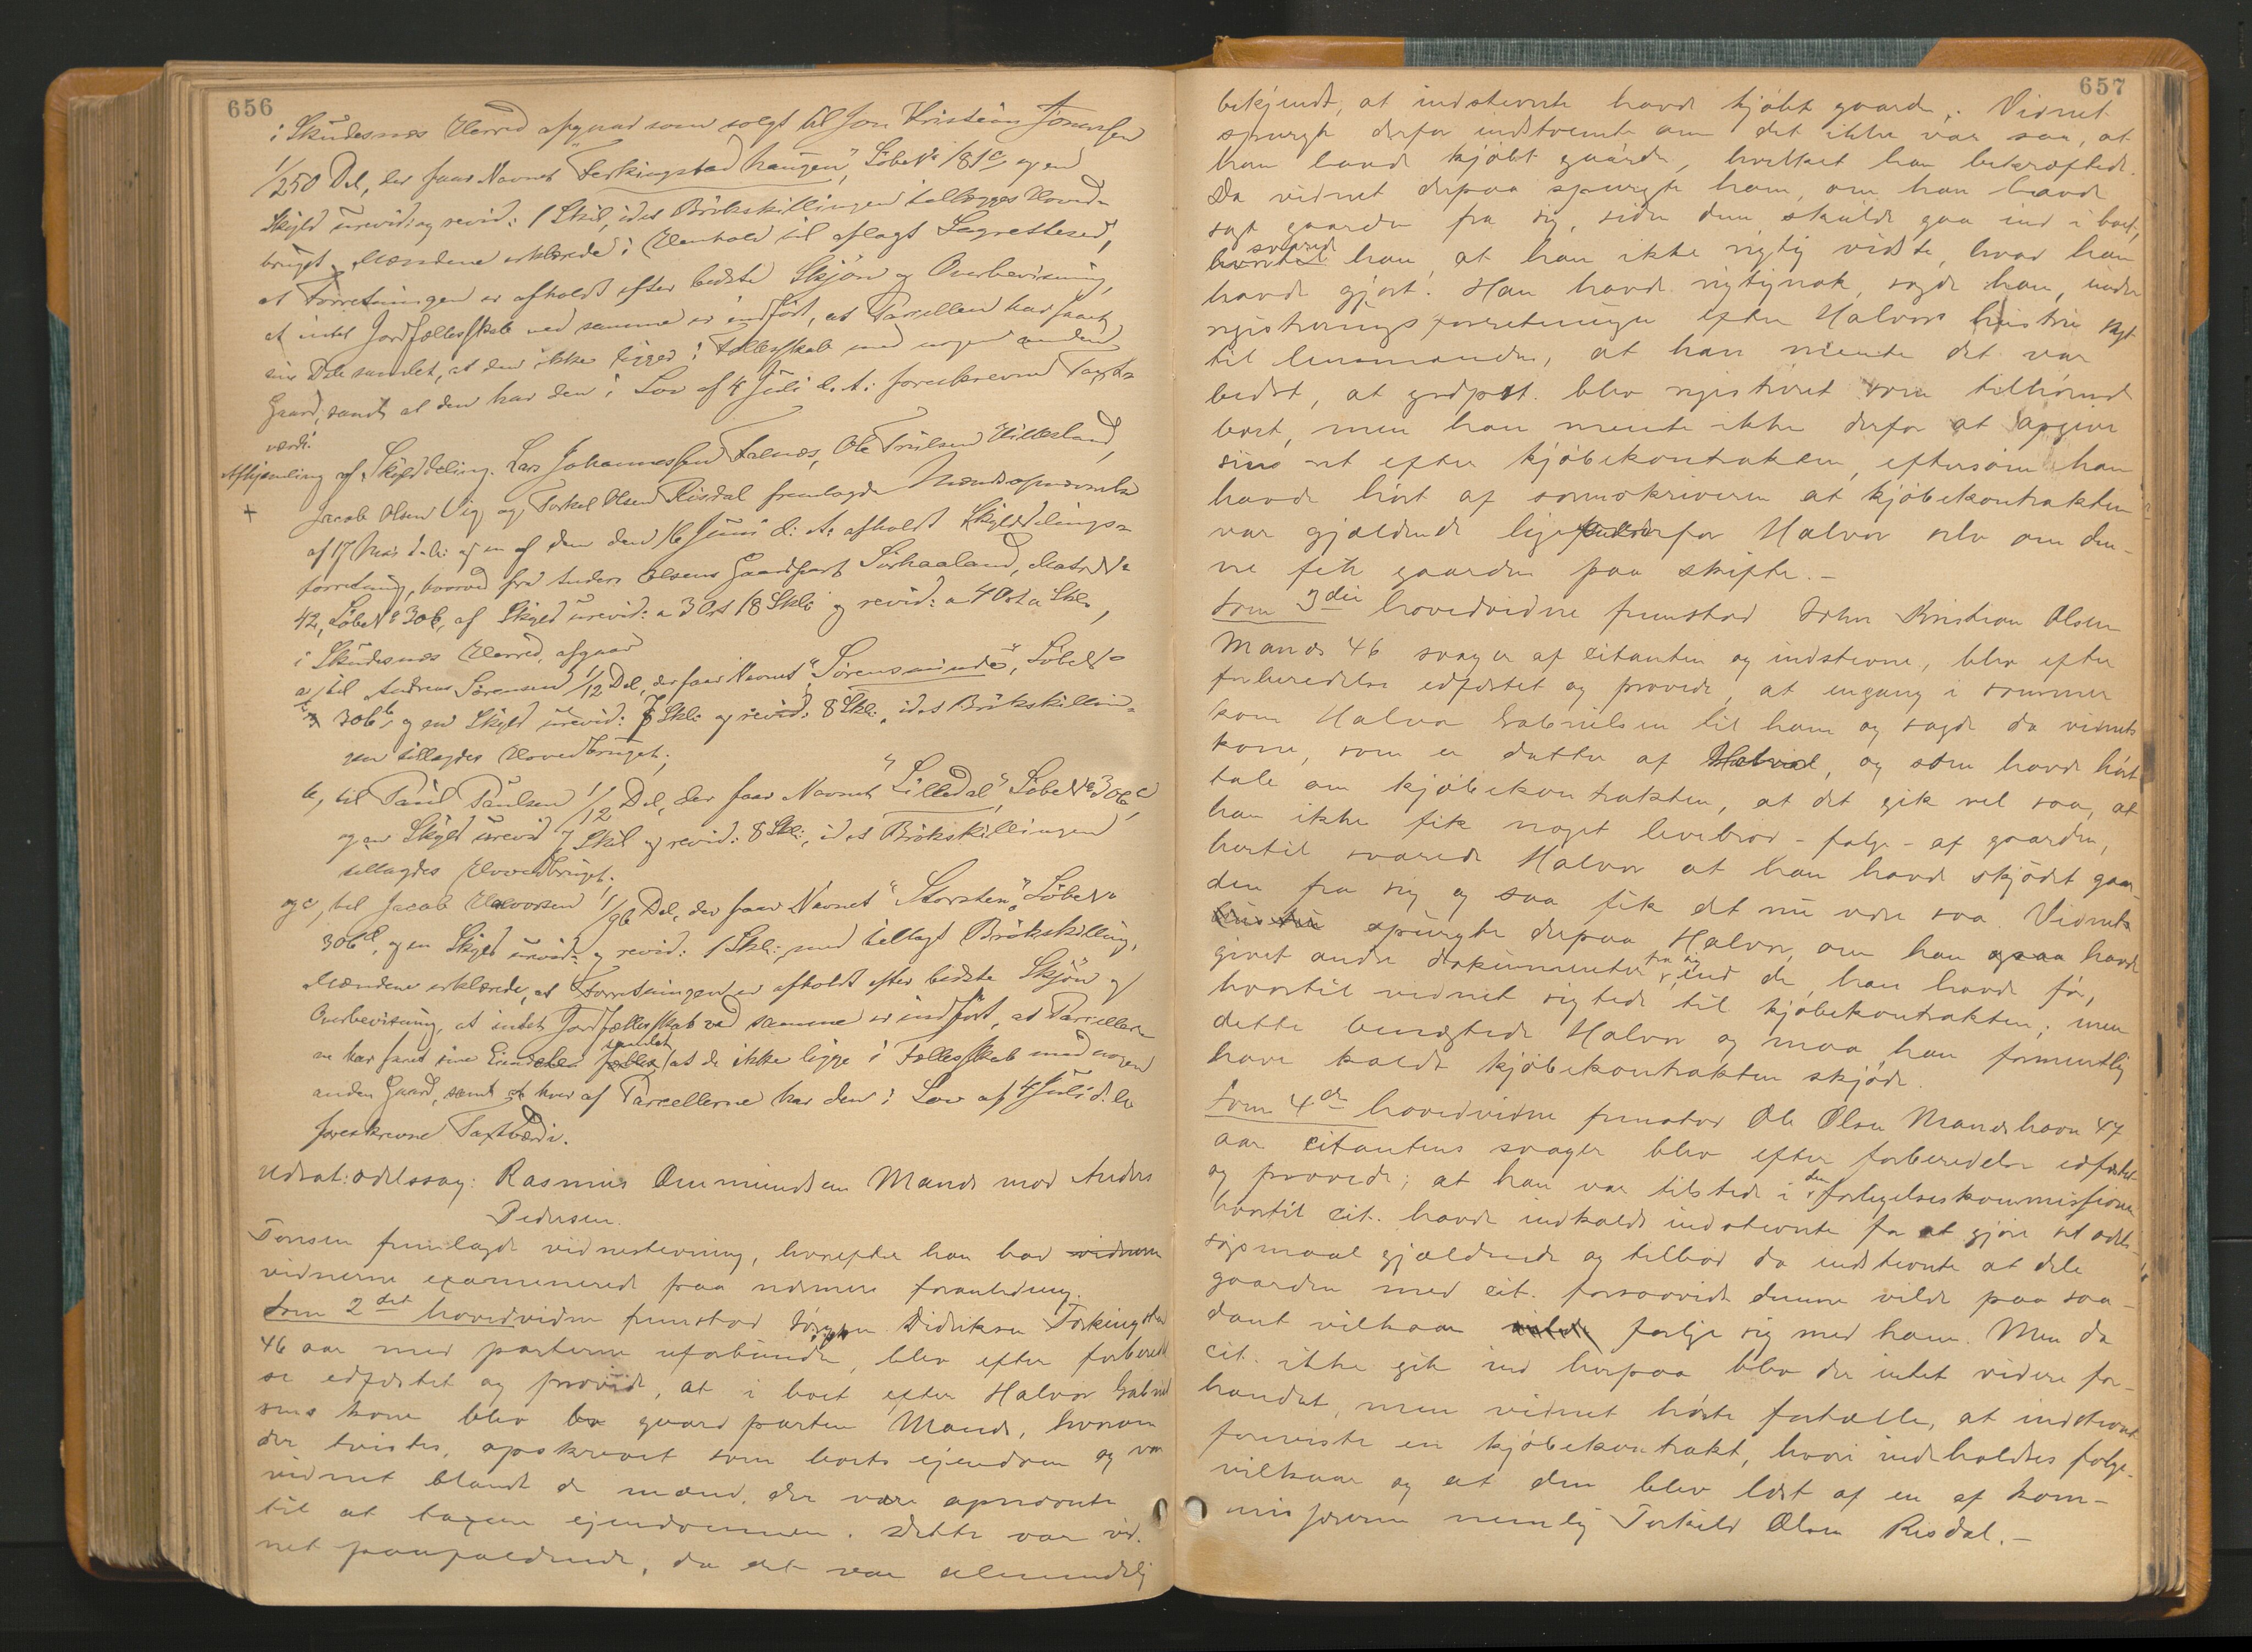 656
i Skudesnæs Herred afgaar som solgt til Jon Kristian Jonassen
1/250 Del, der faar Navnet "Ferkingstad haugen", Løbe No 181c og en
Skyld urevid: og revid: 1 Skil, idet Brøkskillingen tillægges Hoved-
bruget. Mændene erklærede i Henhold til aflagt Lagretteseed,
at Forretningen er afholdt efter bedste Skjøn og Overbevisning,
at intet Jordfællesskab ved samme er indført, at Parcellen har faaet
sin Dele samlet, at den ikke ligger i Fællesskab med nogen anden
Gaard, samt at den har den i Lov af 4 Juli d. A. foreskrevne Taxt-
værdi.
Afhjemling af Skylddeling. Lars Johannessen Falnæs, Ole Trulsen Hillesland,
+ Jacob Olsen Vig og Torkel Olsen Risdal fremlagde Mandsopnævnelse
af 17 Mai d. A. og en af dem den 16 Juni d: A: afholdt Skylddelings-
forretning, hvorved fra Anders Olsens Gaardpart Sørhaaland, Matr No
42, Løbe No 306, af Skyld urevid: a 3 Ort 18 Skl: og revid: a 4 Ort a Skl.,
i Skudesnæs Herred, afgaar
a, til Andreas Sørensen 1/12 Del, der faar Navnet "Sørensminde", Løbe No
306b, og en Skyld urevid: 7 Skl: og revid: 8 Skl:, idet Brøkskillin-
gen tillagdes Hovedbruget;
b, til Paul Paulsen 1/12 Del, der faar Navnet "Lilledal", Løbe No 306c
og en Skyld urevid 7 Skil og revid: 8 Skl:, idet Brøkskillingen
tillagdes Hovedbruget;
og c, til Jacob Halvorsen 1/96 Del, der faar Navnet "Storsten", Løbe No
306d, og en Skyld urevid: og revid: 1 Skl:, med tillagt Brøkskilling.
Mændene erklærede, at Forretningen er afholdt efter bedste Skjøn og
Overbevisning, at intet Jordfællesskab ved samme er indført, at Parceller-
ne har faaet sine Eiendele samlet, at de ikke ligge i Fællesskab med nogen
anden Gaard, samt at hver af Parcellerne har den i Lov af 4 Juli d. A.
foreskrevne Taxtværdi.
Udsat: odelssag: Rasmus Ommundsen Mands mod Anders
Pedersen.
Tonsen fremlagde vidnestevning, hvorefter han bad vidnerne
vidnerne examinerede paa nærmere foranledning.
Som 2det hovedvidne fremstod Jørgen Didriksen Ferkingstad
46 aar med parterne uforbunden, blev efter forberedel
se edfæstet og provede, at i boet efter Halvor Gabriel
sens kone blev gaardparten Mands, hvorom
der tvistes, opskrevet som boets ejendom og var
vidnet blandt de mænd, der vare opnævnte
til at taxere ejendommen. Dette var vid-
net paafaldende, da det var almindelig
657
bekjendt, at indstevnte havde kjøbt gaarden. Vidnet
spurgte derfor indstevnte om det ikke var saa, at
han havde kjøbt gaarden, hvilket han bekræftede.
Da vidnet derpaa spurgte ham, om han havde
sagt gaarden fra sig, siden den skulde gaa ind i boet,
svarede han, at han ikke rigtig vidste, hvad han
havde gjort. Han havde rigtignok, sagde han, under
registreringsforretningen efter Halvors hustru sagt
til lensmanden, at han mente det var
bedst, at grdpst. blev registreret som tilhørende
boet, men han mente ikke derfor at opgive
sin ret efter kjøbekontrakten, eftersom han
havde hørt af sorenskriveren at kjøbekontrakten
var gjældende lige overfor Halvor selv om den-
ne fik gaarden paa skifte.-
Som 3die hovedvidne fremstod John Kristian Olsen
Mands 46 svager af citanten og indstevnte, blev efter
forberedelse edfæstet og provede, at engang i sommer
kom Halvor Gabrielsen til ham og sagde da vidnets
kone, som er datter af Halvor, og som havde hørt
tale om kjøbekontrakten, at det gik vel saa, at
han ikke fik noget levebrød - følge - af gaarden,
hertil svarede Halvor at han havde skjødt gaar-
den fra sig og saa fik det nu være saa. Vidnets
hustru spurgte derpaa Halvor, om han ogsaa havde
givet andre dokumenter fra sig end de, han havde før,
hvortil vidnet sigtede til kjøbekontrakten; men
dette benægtede Halvor og maa han formentlig
have kaldt kjøbekontrakten skjøde.
Som 4de hovedvidne fremstod Ole Olsen Mandshavn 47
aar citantens svager blev efter forberedelse edfæstet
og provede; at han var tilstede i den forligelseskommission
hvortil cit. havde indkaldt indstevnte for at gjøre sit odels-
søgsmaal gjældende og tilbød da indstevnte at dele
gaarden med cit. forsaavidt denne vilde paa saa-
dant vilkaar forlige sig med ham. Men da
cit. ikke gik ind herpaa blev der intet videre for-
handlet, men vidnet hørte fortælle, at indstevnte
foreviste en kjøbekontrakt, hvori indholdtes følge-
vilkaar og at den blev læst af en af kom-
missærerne nemlig Torkild Olsen Risdal.-